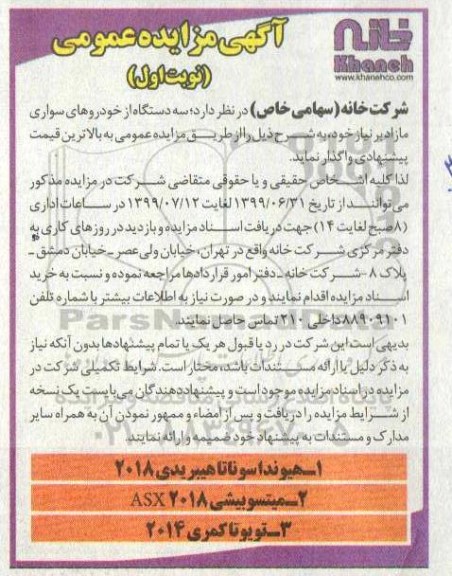 آگهی مزایده عمومی
(نوبت اول)
خانه
Khaneh
www.khanehco.com
شرکت خانه (سهامی خاص) در نظر دارد؛ سه دستگاه از خودروهای سواری
مازاد بر نیاز خود، به شرح ذیل را از طریق مزایده عمومی به بالاترین قیمت
پیشنهادی واگذار نماید.
لذا کلیه اشخاص حقیقی و یا حقوقی متقاضی شرکت در مزایده مذکور
می‌توانند از تاریخ ۱۳۹۹/۰۶/۳۱ لغایت ۱۳۹۹/۰۷/۱۲ در ساعات اداری
(۸ صبح لغایت ۱۴) جهت دریافت اسناد مزایده و بازدید در روزهای کاری به
دفتر مرکزی شرکت خانه واقع در تهران، خیابان ولی عصر ـ خیابان دمشق ـ
پلاک ۸ - شرکت خانه ـ دفتر امور قراردادها مراجعه نموده و نسبت به خرید
اسناد مزایده اقدام نمایند و در صورت نیاز به اطلاعات بیشتر با شماره تلفن
۸۸۹۰۹۱۰۱ داخلی ۲۱۰ تماس حاصل نمایند.
بدیهی است این شرکت در رد یا قبول هر یک یا تمام پیشنهادها بدون آنکه نیاز
به ذکر دلیل یا ارائه مستندات باشد، مختار است. شرایط تکمیلی شرکت در
مزایده در اسناد مزایده موجود است و پیشنهاددهندگان می‌بایست یک نسخه
از شرایط مزایده را دریافت و پس از امضاء و ممهور نمودن آن به همراه سایر
مدارک و مستندات به پیشنهاد خود ضمیمه و ارائه نمایند.
۱ـ هیوندا سوناتا هیبریدی ۲۰۱۸
۲ـ میتسوبیشی ASX ۲۰۱۸
۳ـ تویوتا کمری ۲۰۱۴
ParsNamadData